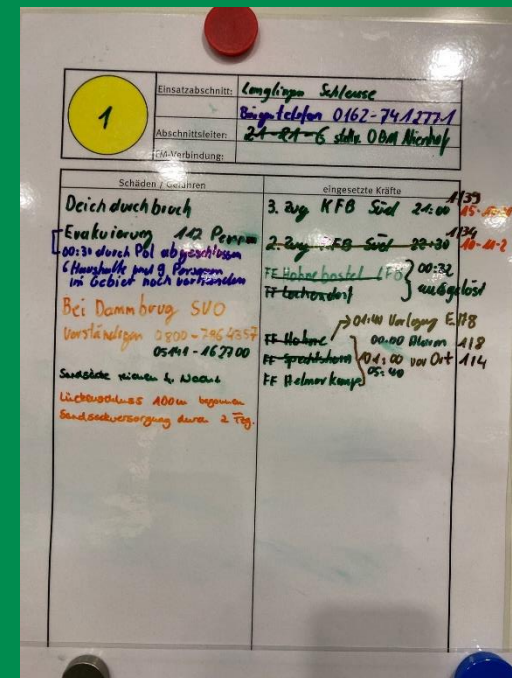 1
Einsatzabschnitt: Langlingen Schleuse
0162-7412771
Abschnittsleiter: 21-21-6 stellv. OBM Nienhof
FM-Verbindung:
Schäden / Gefahren
Deichdurchbruch
Evakuierung 112 Pers
00:30 durch Pol abgeschlossen
6 Haushalte und 9 Personen
im Gebiet noch vorhanden
Bei Dammbruch SVO
verständigen 0800-7864357
05141-167700
Lückenschluss 100m begonnen
Sandsackversorgung durch 2 Zug.
eingesetzte Kräfte
1/39
3. Zug KFB Süd 21:00
1/34
2. Zug KFB Süd 22:30 10-11-2
FF Hohnebostel LFB 00:32
ausgelöst
01:40 Verlegung EA8
FF Hohne 00:00 Alarm 1/8
FF Spechtshorn 01:00 vor Ort 1/4
FF Helmerkamp 05:40